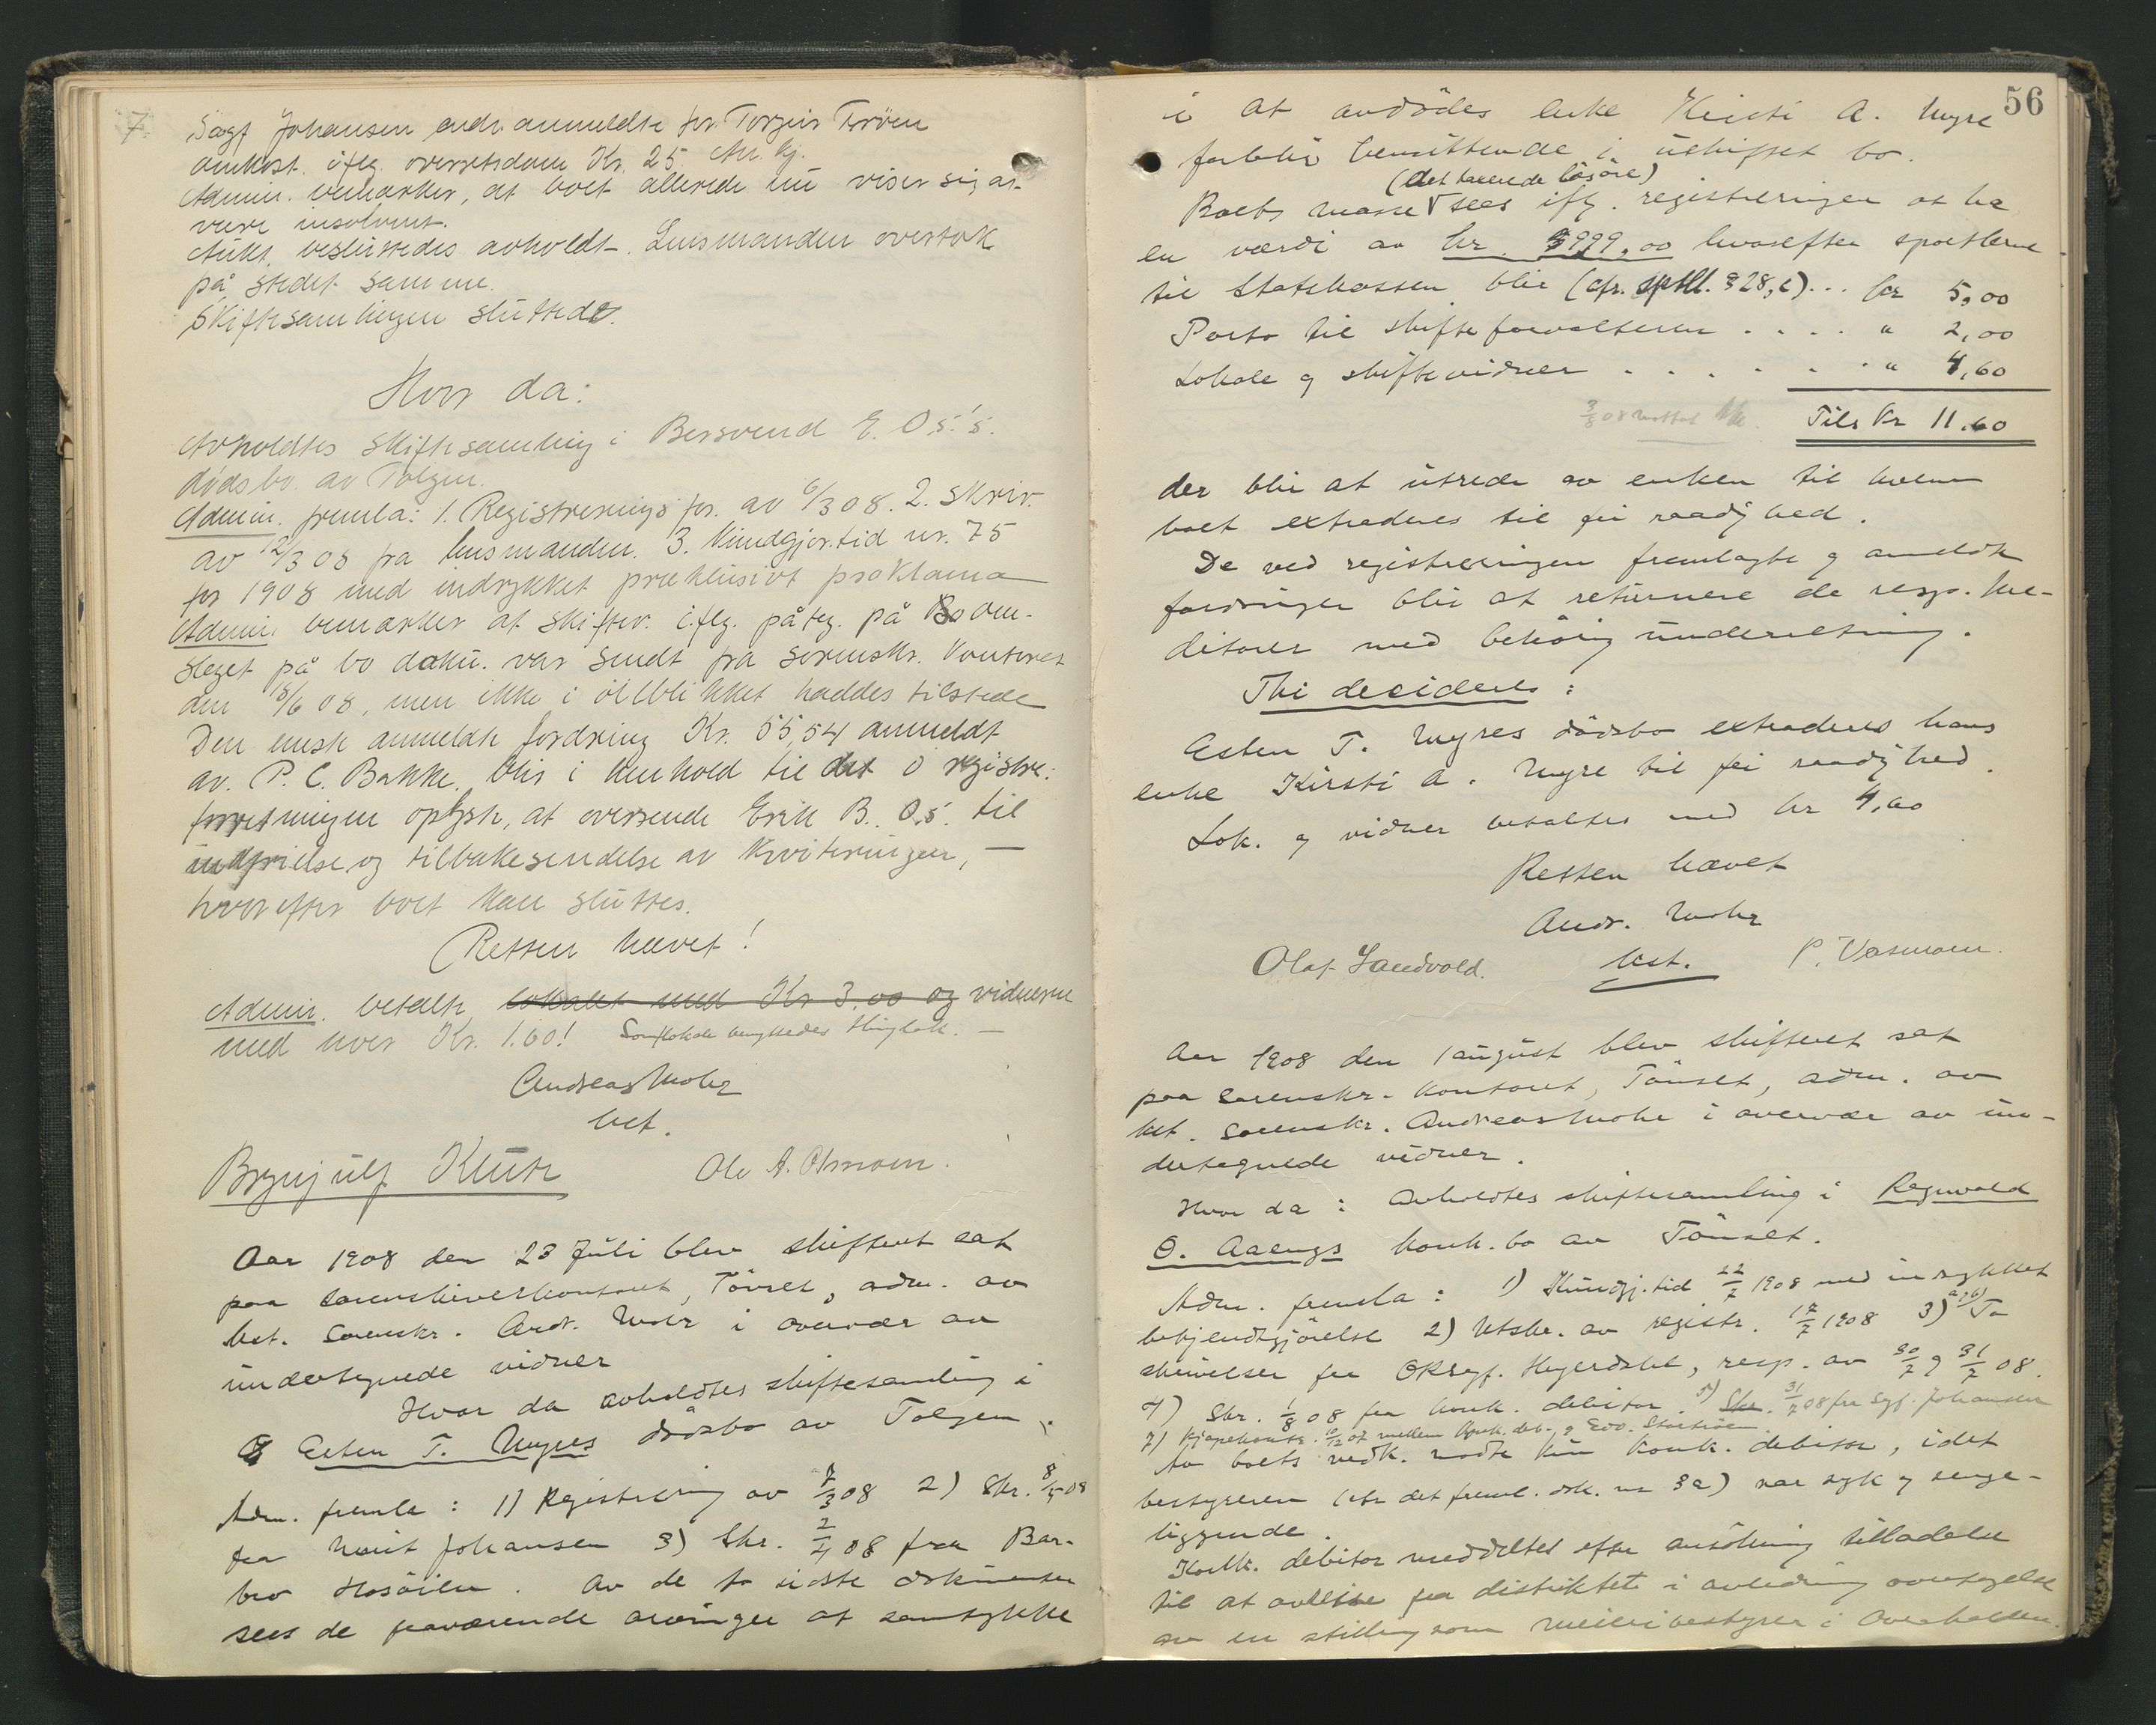 7 Sagf Johansen endv. anmeldte for Torgeir Trøen
omkost. iflg. overretsdom Kr. 25.
Admin. bemærker, at boet allerede nu viser sig at
være insolvent.
Aukt. besluttedes avholdt. Lensmanden overtok
på stedet samme.
Skiftesamlingen sluttede.
Hvor da:
Avholdtes skiftesamling i Bersvend E. Os's
dødsbo av Tolgen.
Admin. fremla: 1. Registreringsfor. av 6/3 08. 2. Skriv.
av 12/3 08 fra lensmanden. 3. Kundgjør.tid nr. 75
for 1908 med indrykket præklusivt proklama
Admin. bemærker at skiftev. iflg. påteg. på om-
slaget på bo doku. var sendt fra sorenskr. kontoret
den 18/6 08, men ikke i øieblikket haddes tilstede
Den eneste anmeldte fordring Kr. 55,54 anmeldt
av P. C. Bakke blir i henhold til det i registre-
forretningen oplyste, at oversende Erik B. Os til
indfrielse og tilbakesendelse av kvitteringen, —
hvorefter boet kan sluttes.
Retten hævet!
Admin. betalte lokalet med Kr 3,00 og vidnerne
med hver Kr. 1.60! Som lokale benyttedes thinglok. —
Andreas Mohr
bet.
Brynjulf Klute Ole A. Osmoen.
Aar 1908 den 23 Juli blev skifteret sat
paa sorenskriverkontoret, Tönset, adm. av
bet. sorenskr. Andr. Mohr i overvær av
undertegnede vidner
Hvor da avholdtes skiftesamling i
Esten T. Myres dødsbo av Tolgen.
Adm. fremla: 1) Registrering av 7/3 08 2) Skr. 8/5 08
fra Marit Johansen 3) Skr. 2/4 08 fra Bar-
bro Hosöien. Av de to sidste dokumenter
sees de fraværende arvinger at samtykke
56
i at avdødes enke Kirsti A. Myre
forblir hensittende i uskiftet bo.
(det hævede løsöre)
Boets masse sees iflg. registreringen at ha
en værdi av kr. 999,00 hvorefter sportlerne
til Statskassen blir (cfr. sptll. § 28,c)... kr 5,00
Porto til skifteforvalteren . . . . " 2,00
Lokale og skiftevidner . . . . . . " 4,60
3/8 08 mottat Tils Kr 11.60
der blir at utrede av enken til hvem
boet extraderes til fri raadighed.
De ved registreringen fremlagte og anmeldte
fordringer blir at returnere de resp. kre-
ditorer med behörig underretning.
Thi decideres:
Esten T. Myres dødsbo extraderes hans
enke Kirsti A. Myre til fri raadighed.
Lok. og vidner betaltes med kr 4,60
Retten hævet
Andr. Mohr
bet.
Olaf Sandvold. P. Vasmoen.
Aar 1908 den 1 august blev skifteret sat
paa sorenskr. kontoret, Tönset, adm. av
bet. sorenskr. Andreas Mohr i overvær av un-
dertegnede vidner.
Hvor da: Avholdtes skiftesamling i Ragnvald
O. Aaengs konk. bo av Tönset.
Adm. fremla: 1) Kundgj.tid 22/7 1908 med indrykket
bekjendtgjörelse 2) Utskr. av registr. 17/7 1908 3) a og b) To
skrivelser fra OKRsgf. Hegerdahl, resp. av 30/7 og 31/7 08.
4) Skr. 1/8 08 fra konk. debitor. 5) Skr. 31/7 08 fra Sgf. Johansen
7) Kjöpekontr. 10/12 07 mellem konk. deb. og Edv. Storeöien.
Av boets vedk. mødte kun konk. debitor, idet
bestyreren (cfr det freml. dok. nr 3a) var syk og senge-
liggende.
Konk. debitor meddeltes efter ansökning tilladelse
til at avreise fra distriktet i anledning overtagelse
av en stilling som meieribestyrer i Overhalden.